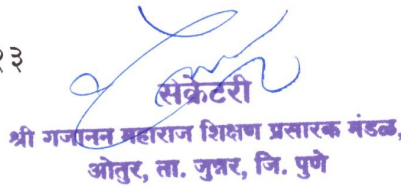 १३
सेक्रेटरी
श्री गजानन महाराज शिक्षण प्रसारक मंडळ,
ओतुर, ता. जुन्नर, जि. पुणे